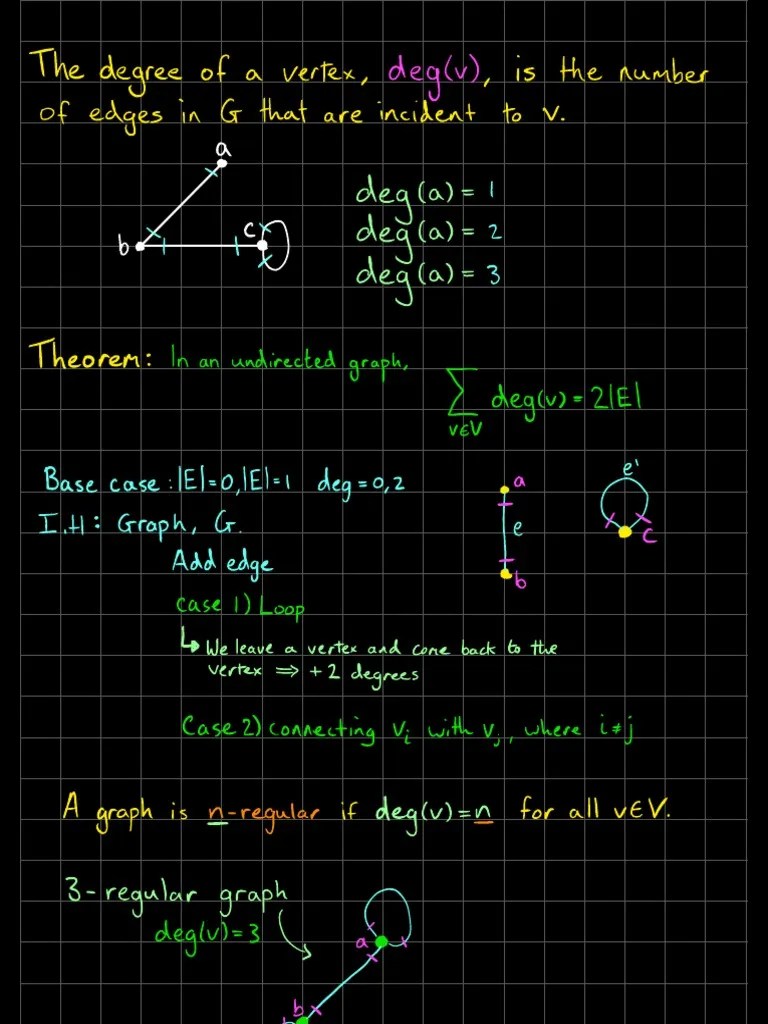 The degree of a vertex, deg(v), is the number
of edges in G that are incident to v.
a
b
c
deg(a) = 1
deg(a) = 2
deg(a) = 3
Theorem: In an undirected graph,
∑ deg(v) = 2|E|
v∈V
Base case: |E|=0, |E|=1 deg = 0, 2
a
e
b
e'
c
I.H: Graph, G.
Add edge
case 1) Loop
↳ We leave a vertex and come back to the
vertex ⟹ +2 degrees
Case 2) connecting vᵢ with vⱼ, where i≠j
A graph is n-regular if deg(v)=n for all v∈V.
3-regular graph
deg(v)=3
a
b